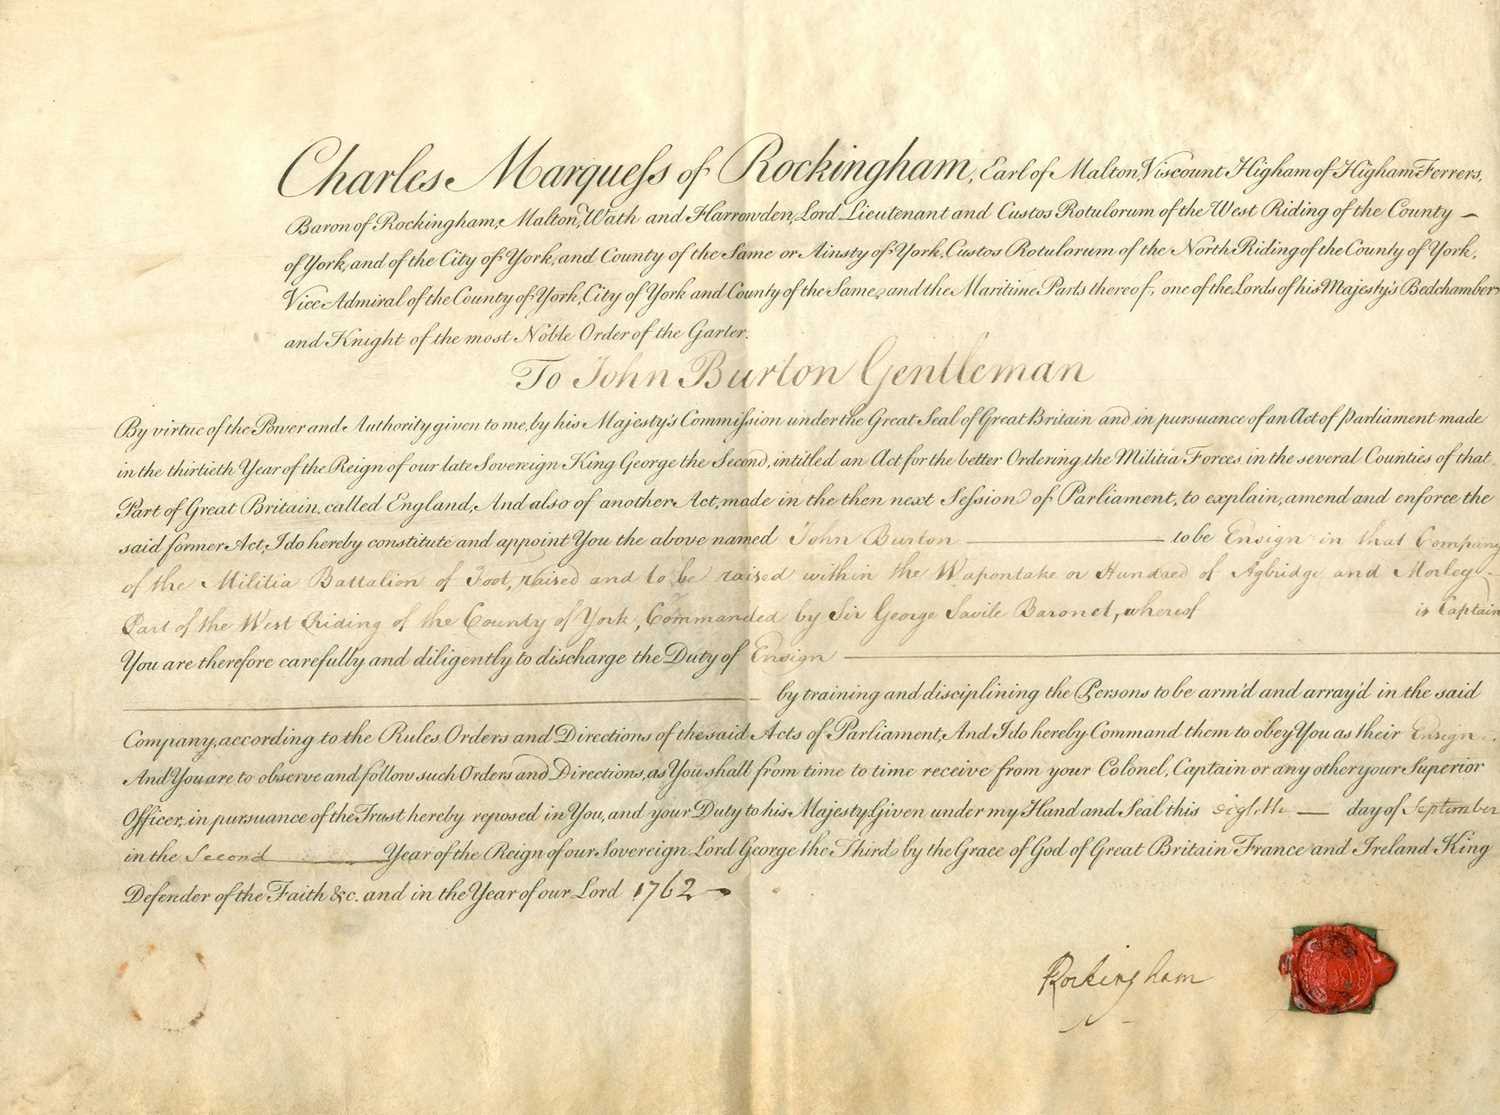 Charles Marquess of Rockingham, Earl of Malton, Viscount Higham of Higham Ferrers,
Baron of Rockingham, Malton, Wath and Harrowden, Lord Lieutenant and Custos Rotulorum of the West Riding of the County
of York, and of the City of York, and County of the Same or Ainsty of York, Custos Rotulorum of the North Riding of the County of York,
Vice Admiral of the County of York, City of York and County of the Same, and the Maritime Parts thereof, one of the Lords of his Majesty's Bedchamber
and Knight of the most Noble Order of the Garter.
To John Burton Gentleman
By virtue of the Power and Authority given to me, by his Majesty's Commission under the Great Seal of Great Britain and in pursuance of an Act of Parliament made
in the thirtieth Year of the Reign of our late Sovereign King George the Second, intitled an Act for the better Ordering the Militia Forces in the several Counties of that
Part of Great Britain called England, And also of another Act, made in the then next Session of Parliament, to explain, amend and enforce the
said former Act, I do hereby constitute and appoint You the above named John Burton — to be Ensign in that Company
of the Militia Battalion of Foot, raised and to be raised within the Wapontake or Hundred of Agbridge and Morley
Part of the West Riding of the County of York, Commanded by Sir George Savile Baronet, whereof is Captain
You are therefore carefully and diligently to discharge the Duty of Ensign —
— by training and disciplining the Persons to be arm'd and array'd in the said
Company, according to the Rules Orders and Directions of the said Acts of Parliament, And I do hereby Command them to obey You as their Ensign
And You are to observe and follow such Orders and Directions, as You shall from time to time receive from your Colonel, Captain or any other your Superior
Officer, in pursuance of the Trust hereby reposed in You, and your Duty to his Majesty. Given under my Hand and Seal this eighth — day of September
in the Second — Year of the Reign of our Sovereign Lord George the Third by the Grace of God of Great Britain France and Ireland King
Defender of the Faith &c. and in the Year of our Lord 1762 —
Rockingham